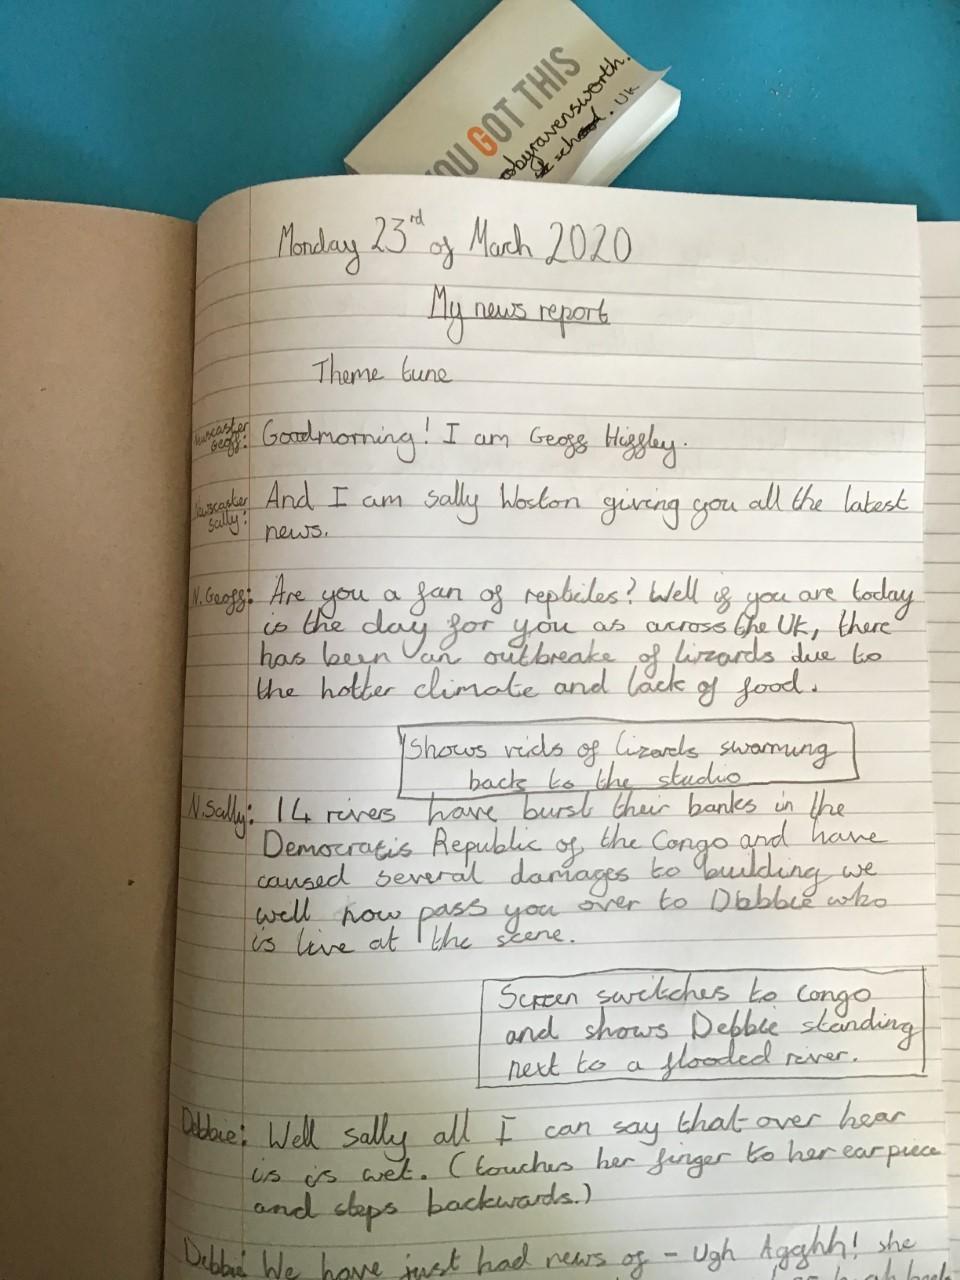 YOU GOT THIS
obyravensworth.
school.UK
Monday 23rd of March 2020
My news report
Theme tune
Newscaster Geoff: Goodmorning! I am Geoff Higgley.
Newscaster Sally: And I am sally Woston giving you all the latest
news.
N.Geoff: Are you a fan of reptiles? Well if you are today
is the day for you as across the UK, there
has been an outbreake of lizards due to
the hotter climate and lack of food.
Shows vids of lizards swarming
back to the studio
N.Sally: 14 rivers have burst their banks in the
Democratis Republic of the Congo and have
caused several damages to building we
well now pass you over to Debbie who
is live at the scene.
Screen switches to Congo
and shows Debbie standing
next to a flooded river.
Debbie: Well sally all I can say that over hear
is is wet. (touches her finger to her ear piece
and steps backwards.)
Debbie: We have just had news of - Ugh Agghh! she